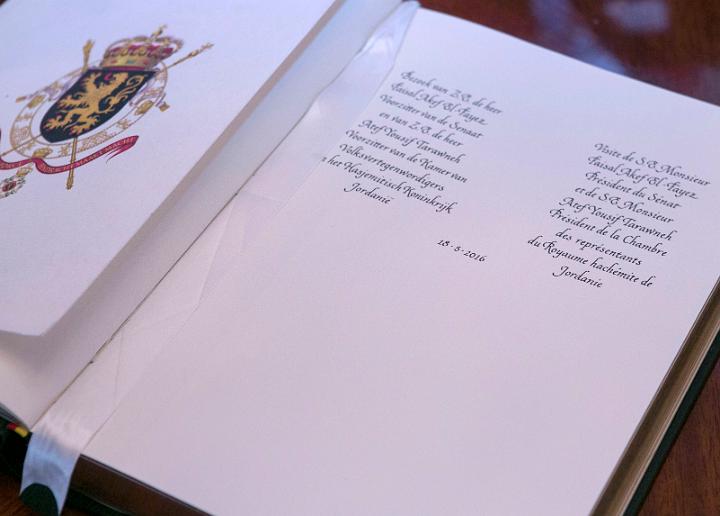 Bezoek van Z.E. de heer
Faisal Akef El-Fayez
Voorzitter van de Senaat
en van Z.E. de heer
Atef Yousif Tarawneh
Voorzitter van de Kamer van
Volksvertegenwoordigers
het Hasjemitisch Koninkrijk
Jordanië
18·5·2016
Visite de S.E. Monsieur
Faisal Akef El-Fayez
Président du Sénat
et de S.E. Monsieur
Atef Yousif Tarawneh
Président de la Chambre
des représentants
du Royaume hachémite de
Jordanie